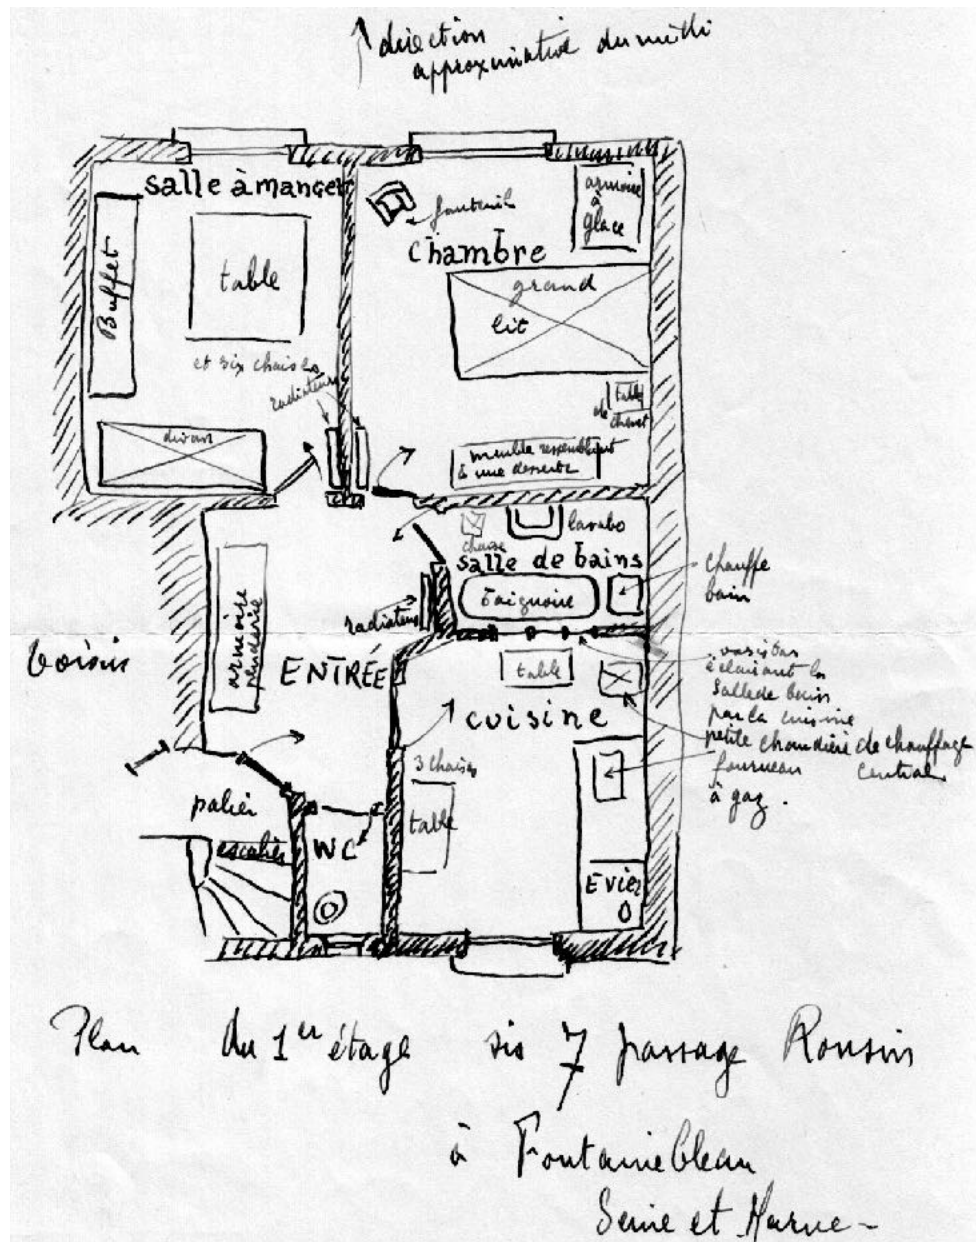 direction
approximative du midi
salle à manger
Buffet
table
et six chaises
radiateurs
divan
fauteuil
chambre
armoire
à
glace
grand
lit
table
de chevet
meuble ressemblant
à une desserte
chaise
lavabo
salle de bains
baignoire
chauffe
bain
radiateur
armoire
penderie
ENTRÉE
voisin
vasistas
éclairant la
salle de bain
par la cuisine
petite chaudière de chauffage
central
fourneau
à gaz.
table
cuisine
3 chaises
table
Evier
palier
escalier
WC
Plan du 1er étage sis 7 passage Ronsin
à Fontainebleau
Seine et Marne -